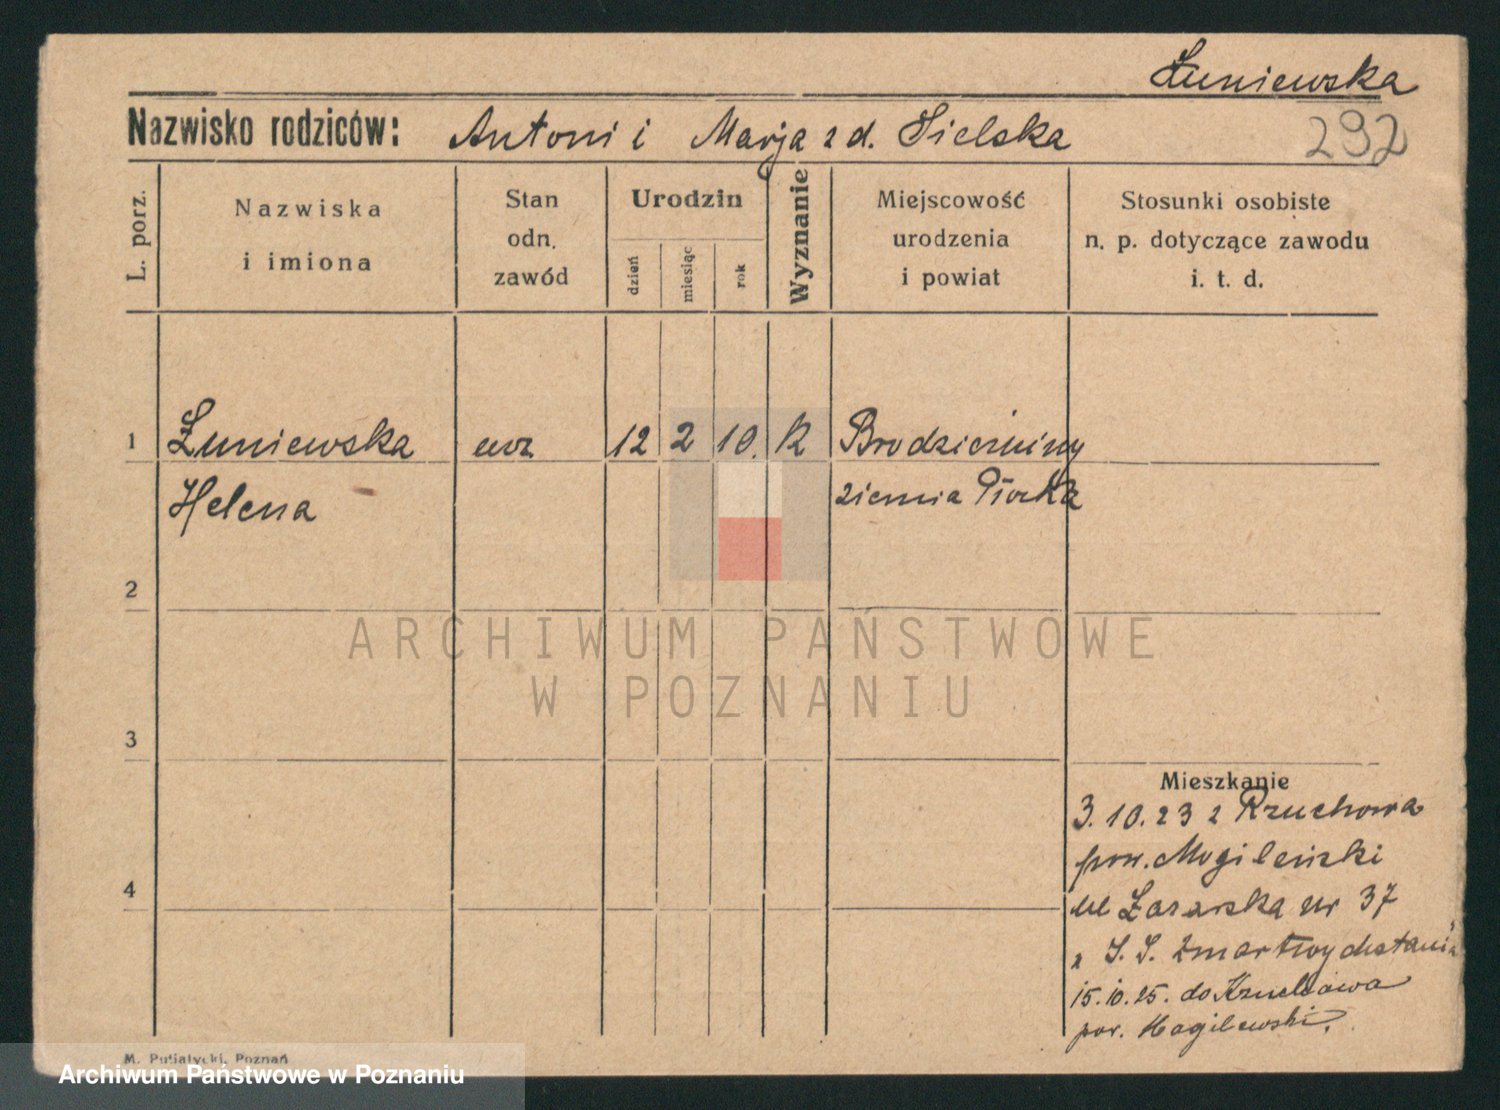 Łuniewska
Nazwisko rodziców: Antoni i Marja z d. Sielska
292
L. porz.
Nazwiska
i imiona
Stan
odn.
zawód
Urodzin
dzień
miesiąc
rok
Wyznanie
Miejscowość
urodzenia
i powiat
Stosunki osobiste
n. p. dotyczące zawodu
i. t. d.
1 Łuniewska ucz 12 2 10. K
Helena ziemia
2
ARCHIWUM PAŃSTWOWE
W POZNANIU
3
Mieszkanie
3.10.23 z Rzuchowa
pow. Mogileński
4
ul Łazarska nr 37
z S. S. Zmartwychstania
15.10.25. do Rzuchowa
pow. Mogilewski.
M. Putiatycki, Poznań
Archiwum Państwowe w Poznaniu